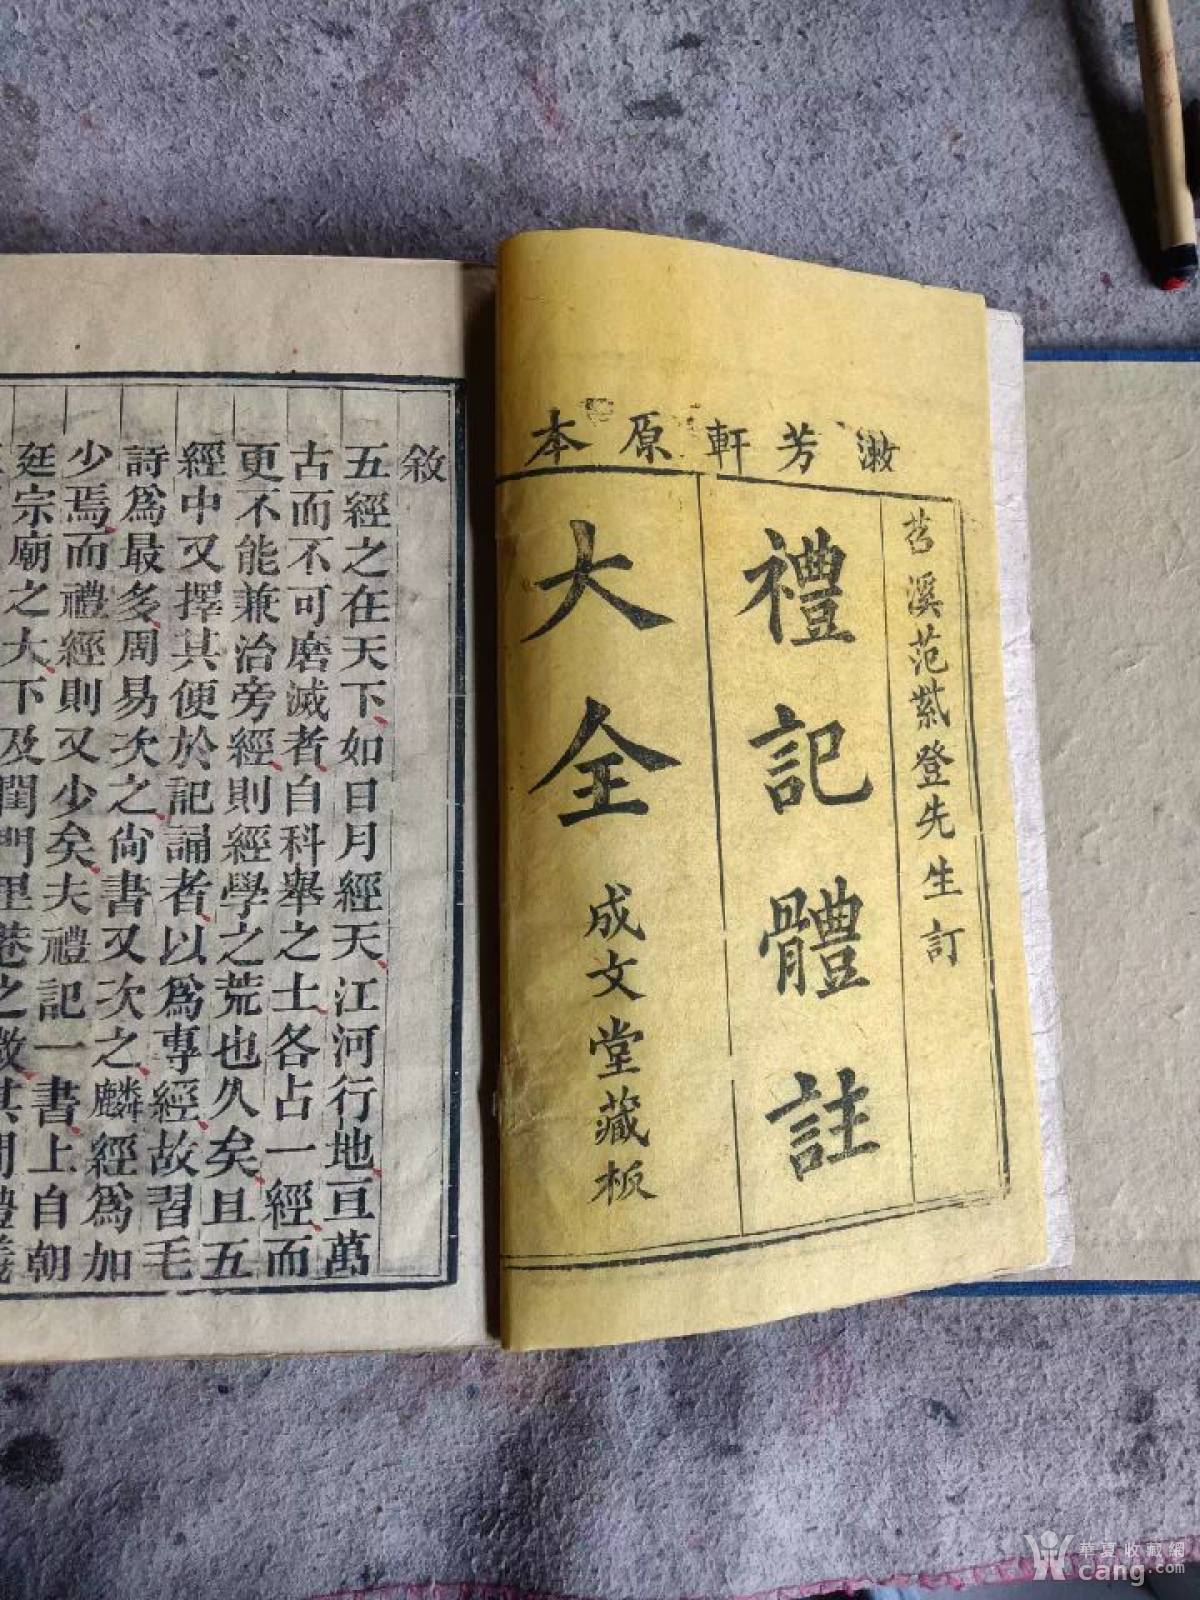 漱芳軒原本
苕溪范紫登先生訂
禮記體註
大全
成文堂藏板
敘
五經之在天下如日月經天江河行地亘萬
古而不可磨滅者自科舉之士各占一經而
更不能兼治旁經則經學之荒也久矣且五
經中又擇其便於記誦者以為專經故習毛
詩為最多周易次之尙書又次之麟經為加
少焉而禮經則又少矣夫禮記一書上自朝
廷宗廟之大下及閨門里巷之微其間禮義
華夏收藏網
cang.com